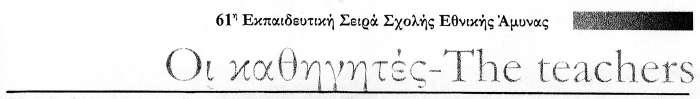 61η Εκπαιδευτική Σειρά Σχολής Εθνικής Άμυνας
Οι καθηγητές-The teachers